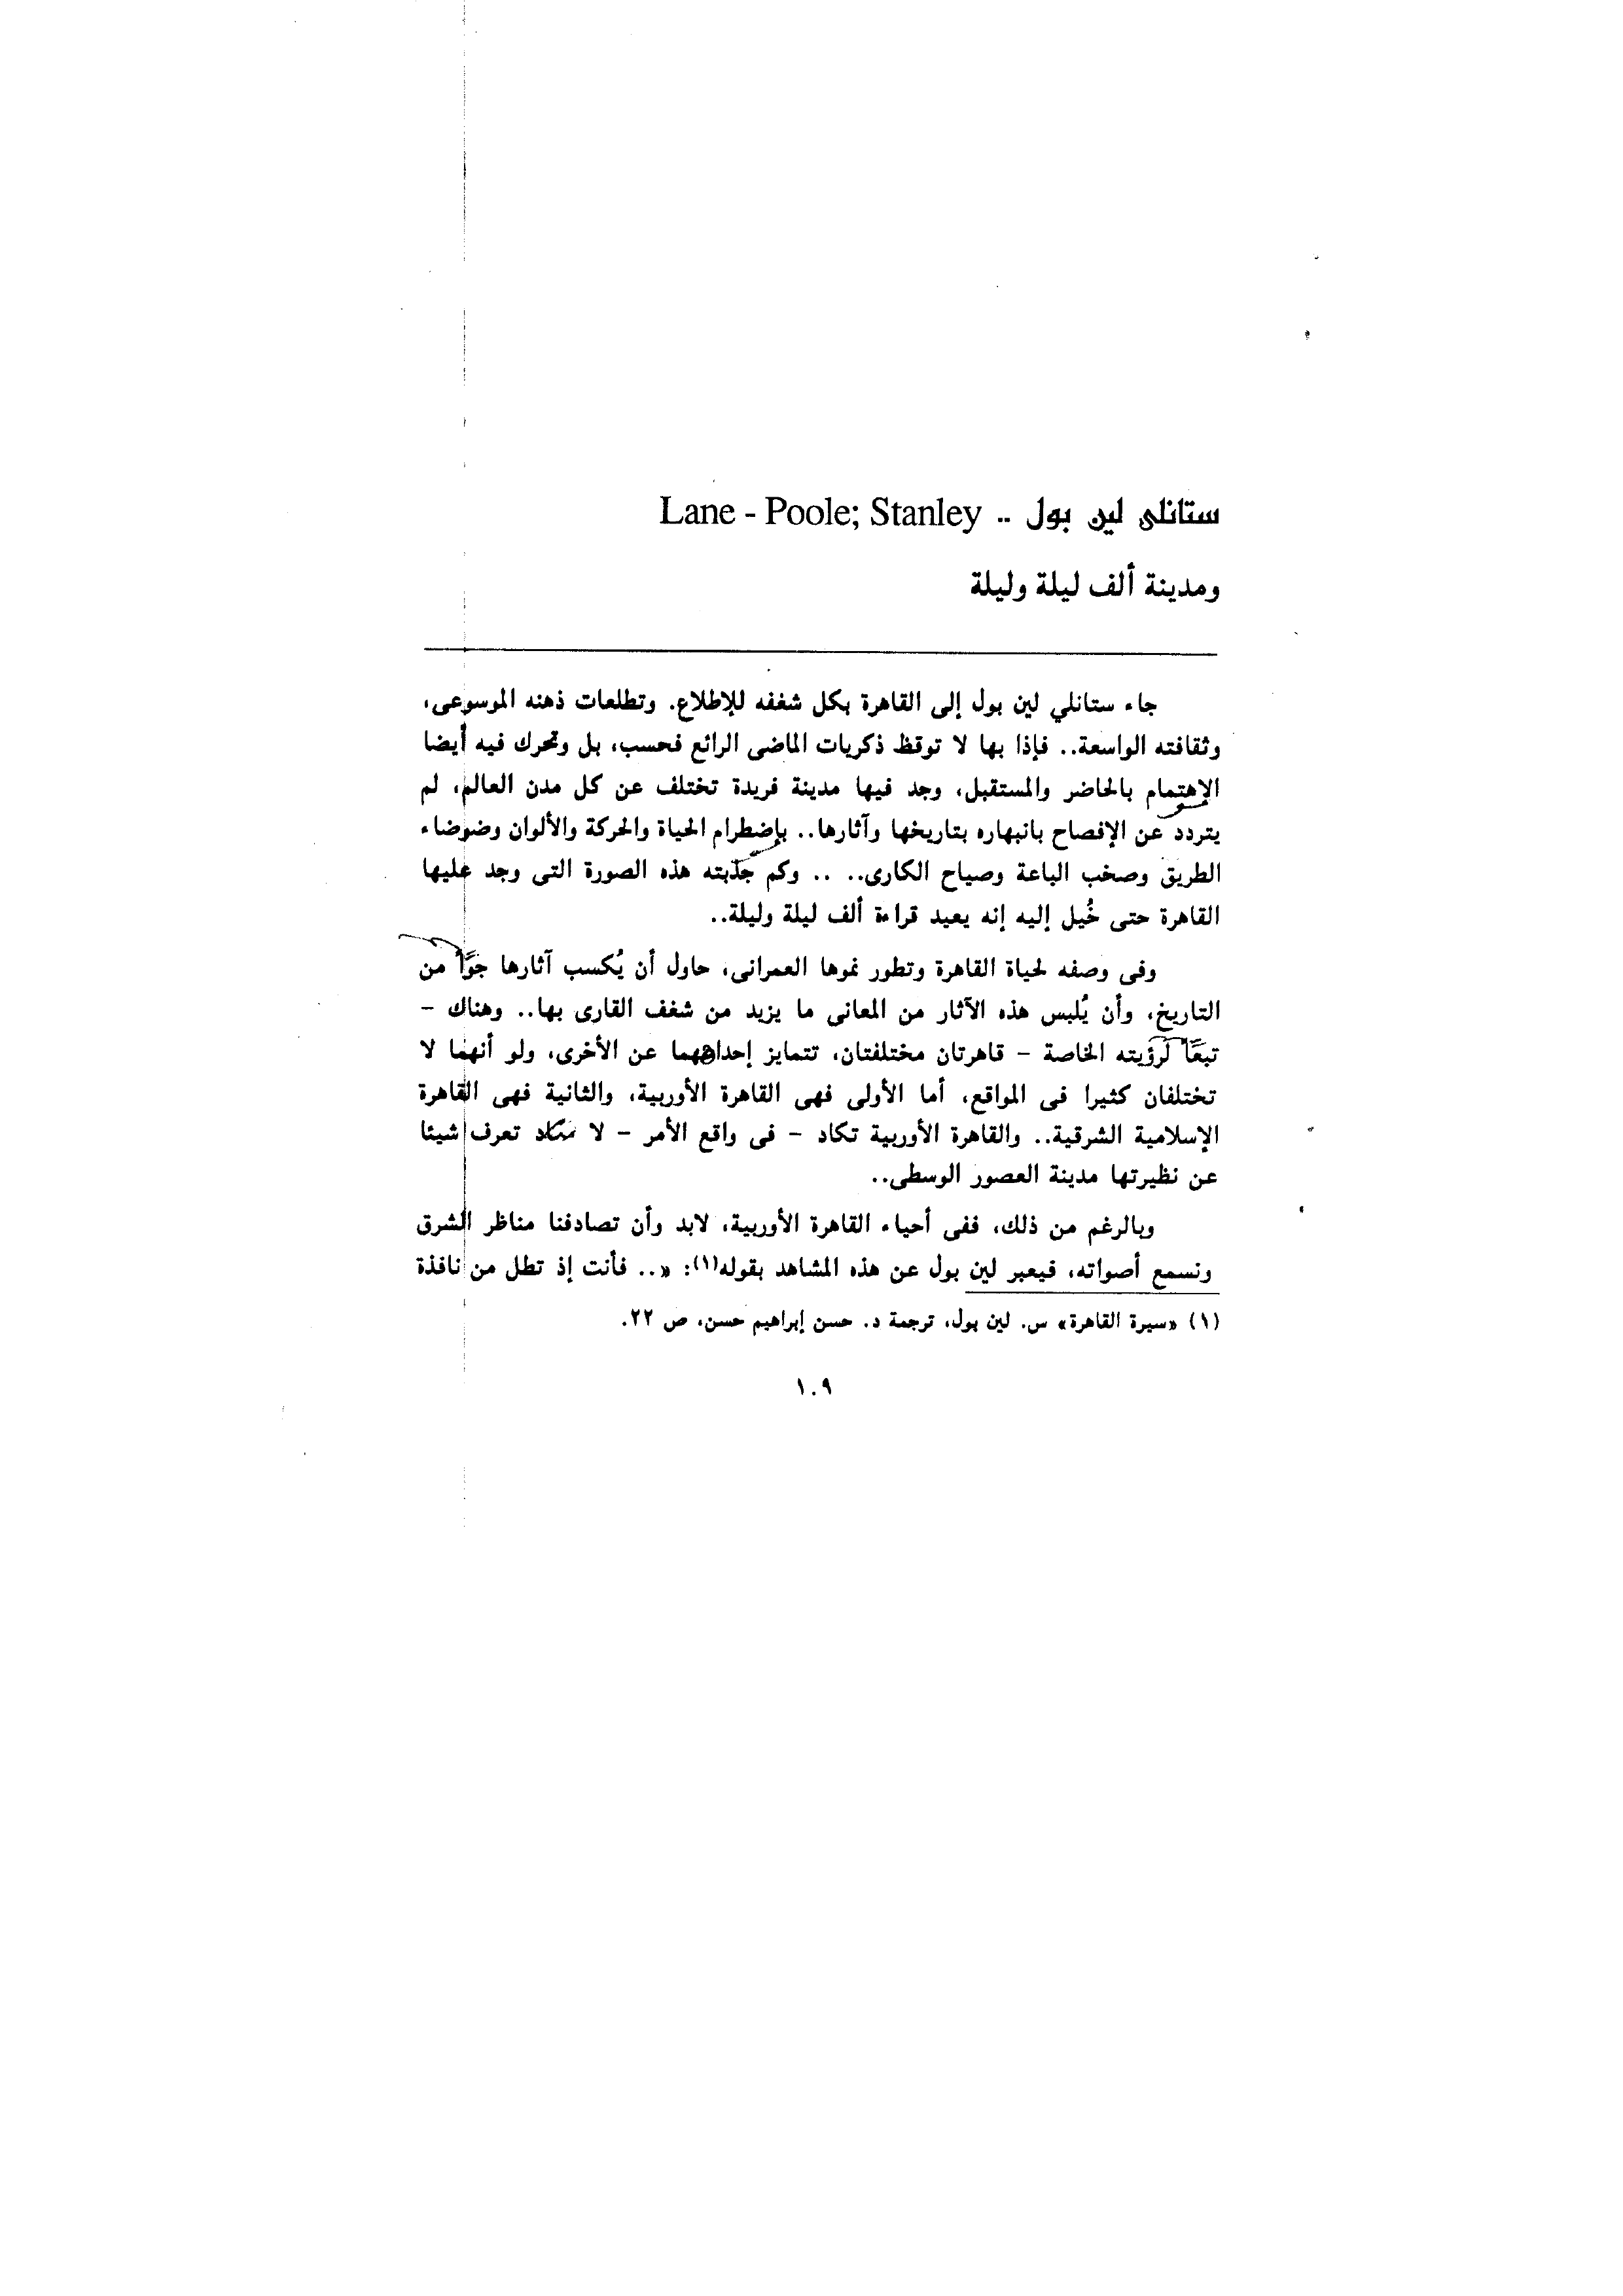 ستانلى لين بول .. Lane - Poole; Stanley
ومدينة ألف ليلة وليلة
جاء ستانلي لين بول إلى القاهرة بكل شغفه للإطلاع. وتطلعات ذهنه الموسوعى،
وثقافته الواسعة.. فإذا بها لا توقظ ذكريات الماضى الرائع فحسب، بل وتحرك فيه أيضا
الإهتمام بالحاضر والمستقبل، وجد فيها مدينة فريدة تختلف عن كل مدن العالم، لم
يتردد عن الإفصاح بانبهاره بتاريخها وآثارها.. بإضطرام الحياة والحركة والألوان وضوضاء
الطريق وصخب الباعة وصياح الكارى.. .. وكم جذبته هذه الصورة التى وجد عليها
القاهرة حتى خُيل إليه إنه يعيد قراءة ألف ليلة وليلة..
وفى وصفه لحياة القاهرة وتطور نموها العمرانى، حاول أن يُكسب آثارها جوًا من
التاريخ، وأن يُلبس هذه الآثار من المعانى ما يزيد من شغف القارى بها.. وهناك -
تبعًا لرؤيته الخاصة - قاهرتان مختلفتان، تتمايز إحداهما عن الأخرى، ولو أنهما لا
تختلفان كثيرا فى المواقع، أما الأولى فهى القاهرة الأوربية، والثانية فهى القاهرة
الإسلامية الشرقية.. والقاهرة الأوربية تكاد - فى واقع الأمر - لا تعرف شيئا
عن نظيرتها مدينة العصور الوسطى..
وبالرغم من ذلك، ففى أحياء القاهرة الأوربية، لابد وأن تصادفنا مناظر الشرق
ونسمع أصواته، فيعبر لين بول عن هذه المشاهد بقوله(١): «.. فأنت إذ تطل من نافذة
(١) «سيرة القاهرة» س. لين بول، ترجمة د. حسن إبراهيم حسن، ص ٢٢.
١٠٩